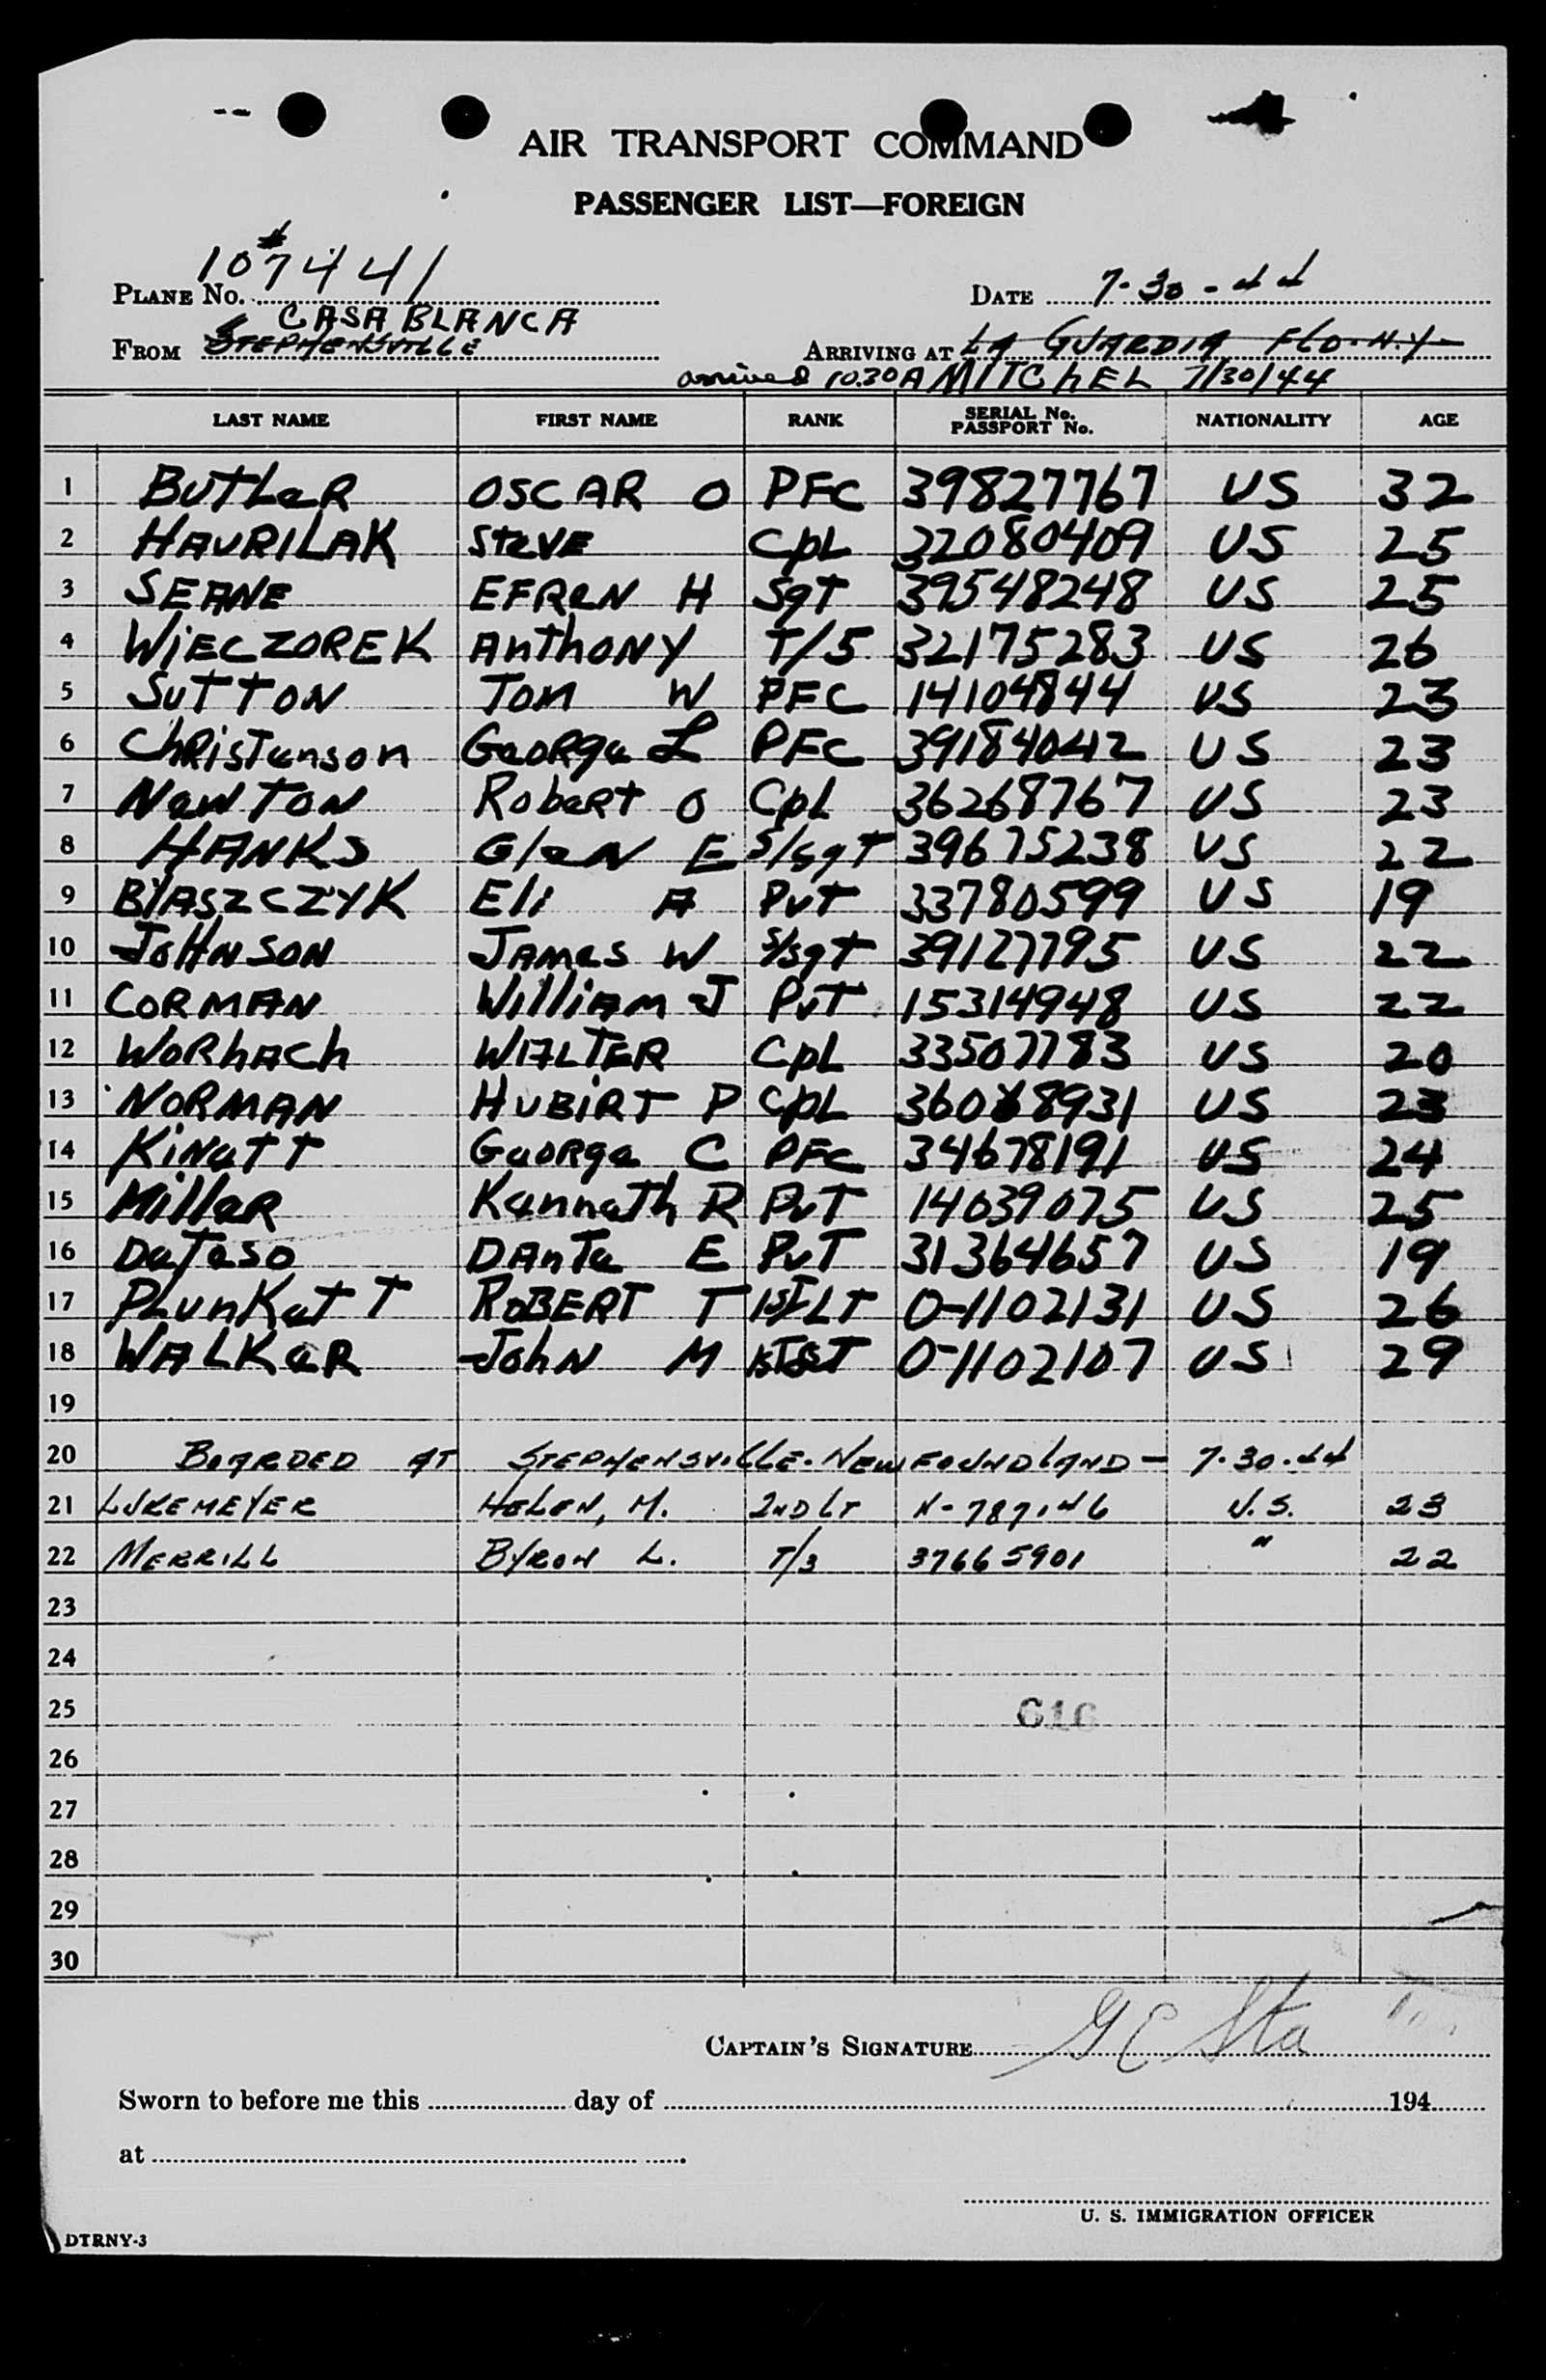 AIR TRANSPORT COMMAND
PASSENGER LIST—FOREIGN
PLANE No. 107441
DATE 7-30-44
CASABLANCA
FROM STEPHENSVILLE
ARRIVING AT LA GUARDIA FLD. N.Y.
arrived 10.30A MITCHEL 7/30/44
LAST NAME FIRST NAME RANK SERIAL No. PASSPORT No. NATIONALITY AGE
1 BUTLeR OSCAR O PFC 39827767 US 32
2 HAVRILAK SteVE CpL 32080409 US 25
3 SEANE EFReN H SgT 39548248 US 25
4 WiECZOREK AnthONY T/5 32175283 US 26
5 SUTTON Tom W PFC 14104844 US 23
6 ChRisTenson GeoRge L PFC 39184042 US 23
7 NewTON RobeRt O CpL 36268767 US 23
8 HANKS GleN E S/sgT 39675238 US 22
9 BlASZCZYK Eli A PvT 33780599 US 19
10 JoHNSON JAmes W S/sgt 39127795 US 22
11 CORMAN WilliAm J PvT 15314948 US 22
12 WoRhACh WALTER CpL 33507783 US 20
13 NORMAN HUBiRT P CpL 36068931 US 23
14 KiNeTT GeoRge C PFC 34678191 US 24
15 MilleR Kenneth R PvT 14039075 US 25
16 DeTeso DAnTe E PvT 31364657 US 19
17 PLunKeTT RoBERT T 1ST LT O-1102131 US 26
18 WALKeR JohN M O-1102107 US 29
19
20 BOARDED AT STEPHENSVILLE. NEWFOUNDLAND - 7.30.44
21 LUKEMEYER HELEN, M. 2ND LT N-787146 U.S. 23
22 MERRILL BYRON L. T/3 37665901 " 22
23
24
25 616
26
27
28
29
30
CAPTAIN'S SIGNATURE
Sworn to before me this day of 194
at
U. S. IMMIGRATION OFFICER
DTRNY-3